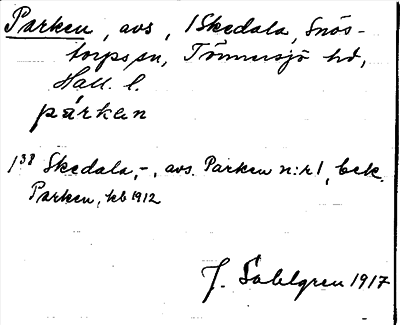 Parken, avs, 1 Skedala, Snös-
torps sn, Tönnersjö hd,
Hall. l.
párkan
1³⁸ Skedala, -, avs. Parken n:r 1, bek.
Parken, kb 1912
J. Sahlgren 1917